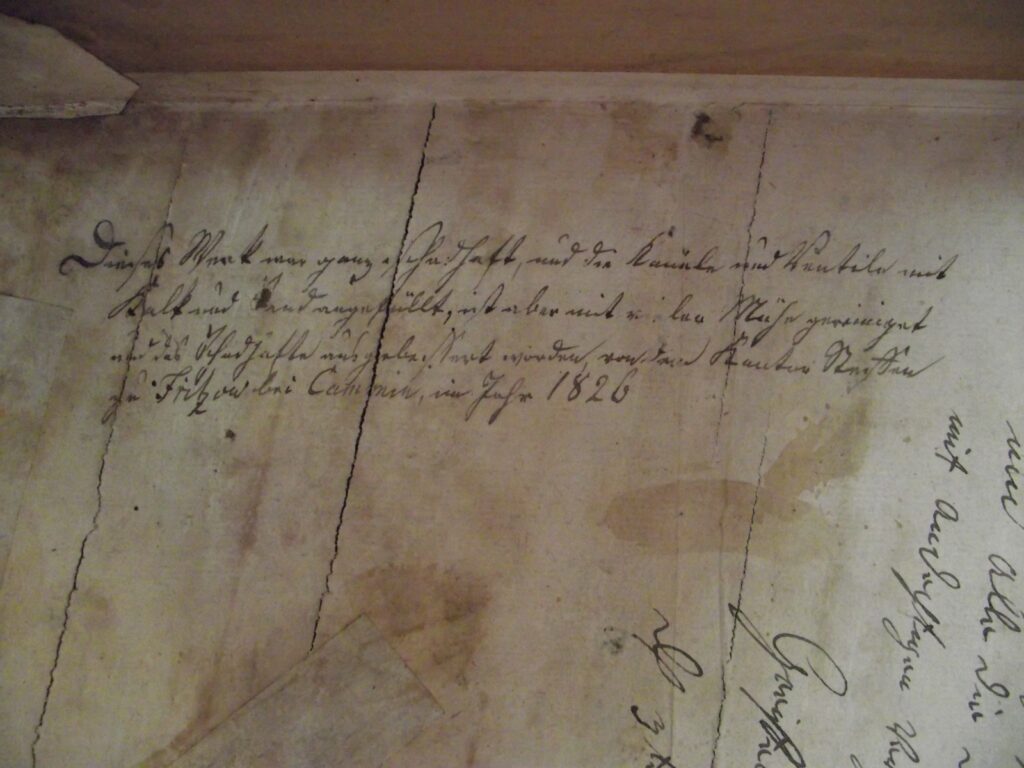 Dieses Werk war ganz schadhaft, und die Kanäle und Ventile mit
Kalk und Sand angefüllt, ist aber mit vieler Mühe gereiniget
und das Schadhafte ausgebessert worden, von dem Kantor Steffen
zu Fritzow bei Cammin, im Jahr 1826
und
alle die
mit